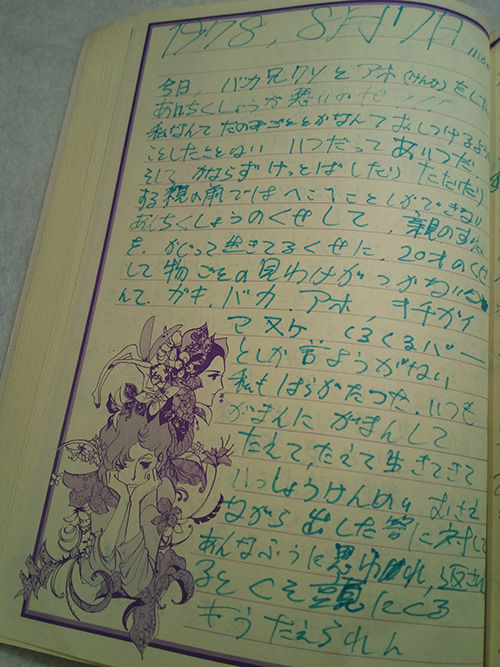 1978, 8月17日
今日、バカ兄クソとアホ(けんか)をした
あんちくしょうが悪いのだ!!!
私なんて たのみごととかなんて おしつけるような
ことしたことない いつだって あいつだ
そして かならず けっとばしたり たたいたり
する 親の前ではへこへことしかできない
あんちくしょうのくせして、親のすね
を、かじって生きてるくせに、20才のくせ
して物ごとの見わけが つかない
んて. ガキ. バカ. アホ, キチガイ
マヌケ くるくるパー
としか言ようがない
私も はらがたつた. いつも
がまんに がまんして
たえて, たえて 生きてきて
いっしょうけんめい
ながら 出した答に対して
あんなふうに思われ, 返され
るとくそ頭にくる
もう たえられん